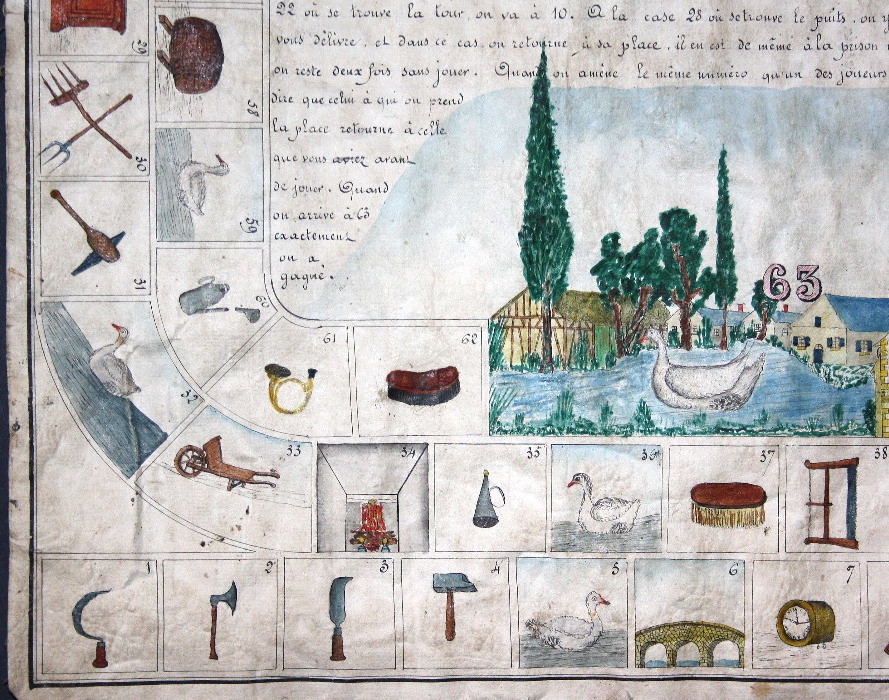 22 où se trouve la tour, on va à 10. A la case 28 où se trouve le puits, on
vous délivre, et dans ce cas on retourne à sa place, il en est de même à la prison
on reste deux fois sans jouer. Quand on amène le même numéro qu'un des joueurs
dire que celui à qui on prend
la place retourne à celle
que vous aviez avant
de jouer. Quand
on arrive à 63
exactement
on a
gagné.
63
29
58
30
59
31
60
61
62
32
33
34
35
36
37
38
1
2
3
4
5
6
7